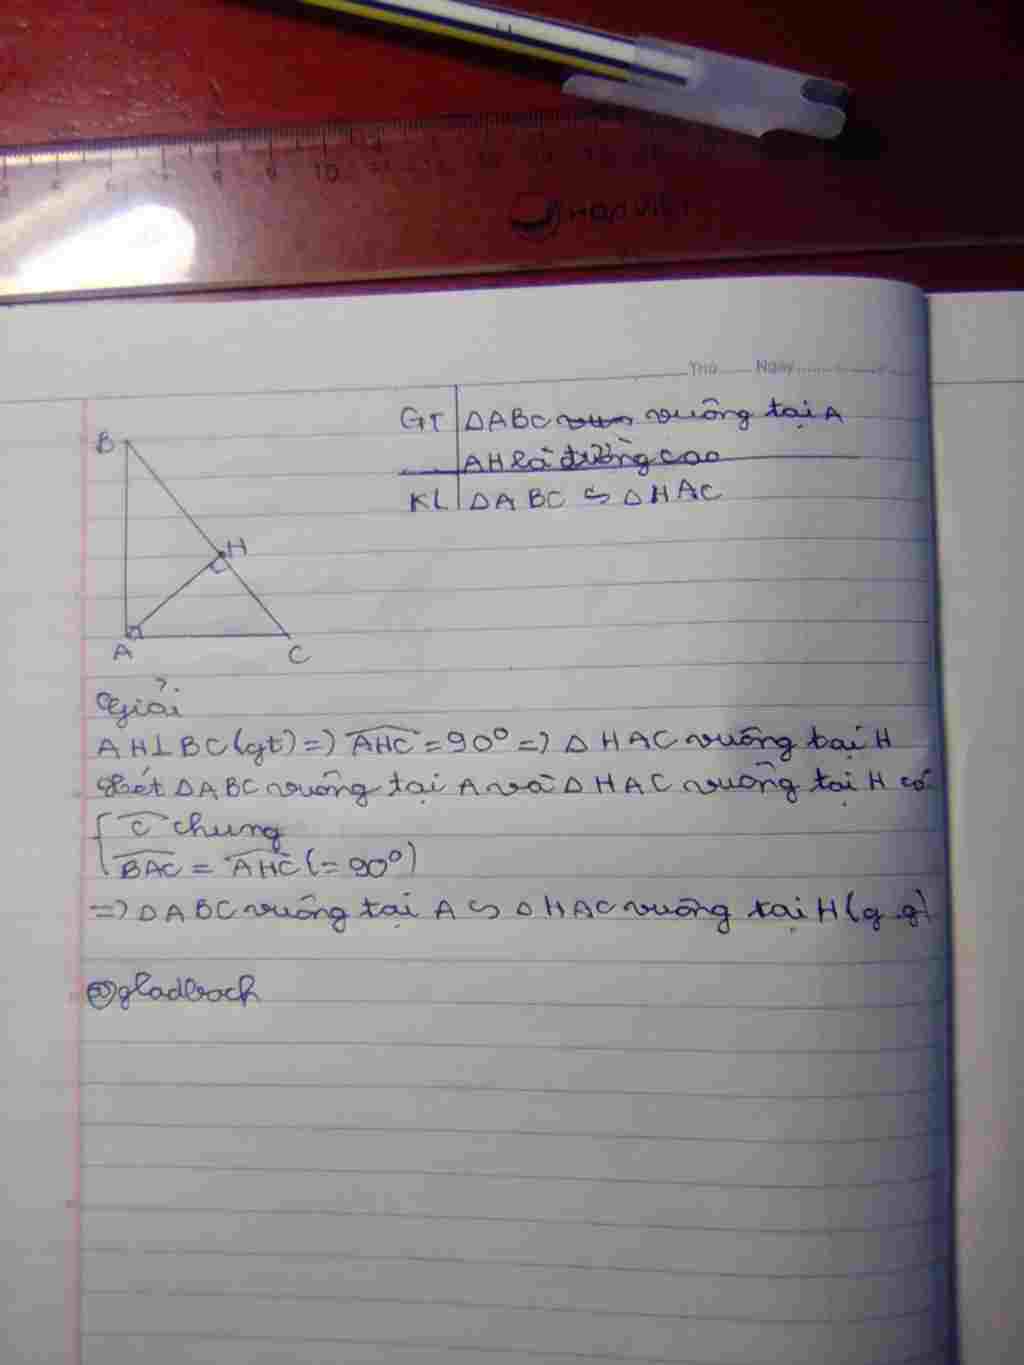 10
HAO VIET
Thứ Ngày
GT ΔABC vuông tại A
AH là đường cao
KL ΔABC ∽ ΔHAC
B
H
A
C
Giải
AH⊥BC(gt)=) AHC = 90° =) Δ HAC vuông tại H
Xét ΔABC vuông tại A và ΔHAC vuông tại H có
{ C chung
BAC = AHC (= 90°)
=) ΔABC vuông tại A ∽ ΔHAC vuông tại H (g.g)
@gladbach